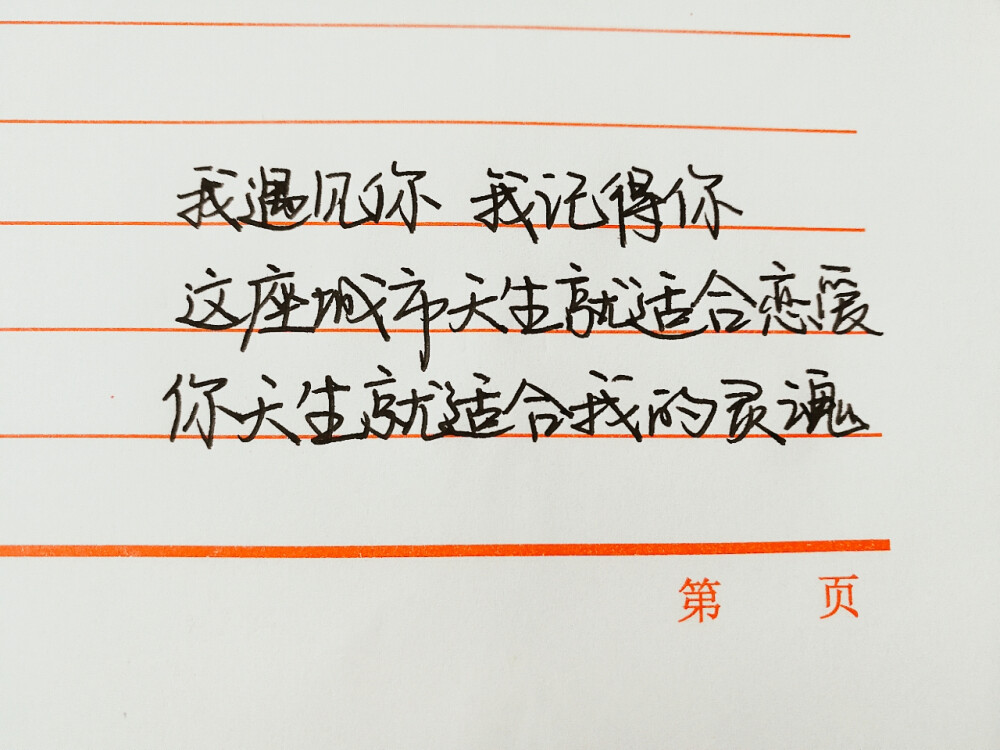 我遇见你 我记得你
这座城市天生就适合恋爱
你天生就适合我的灵魂
第 页